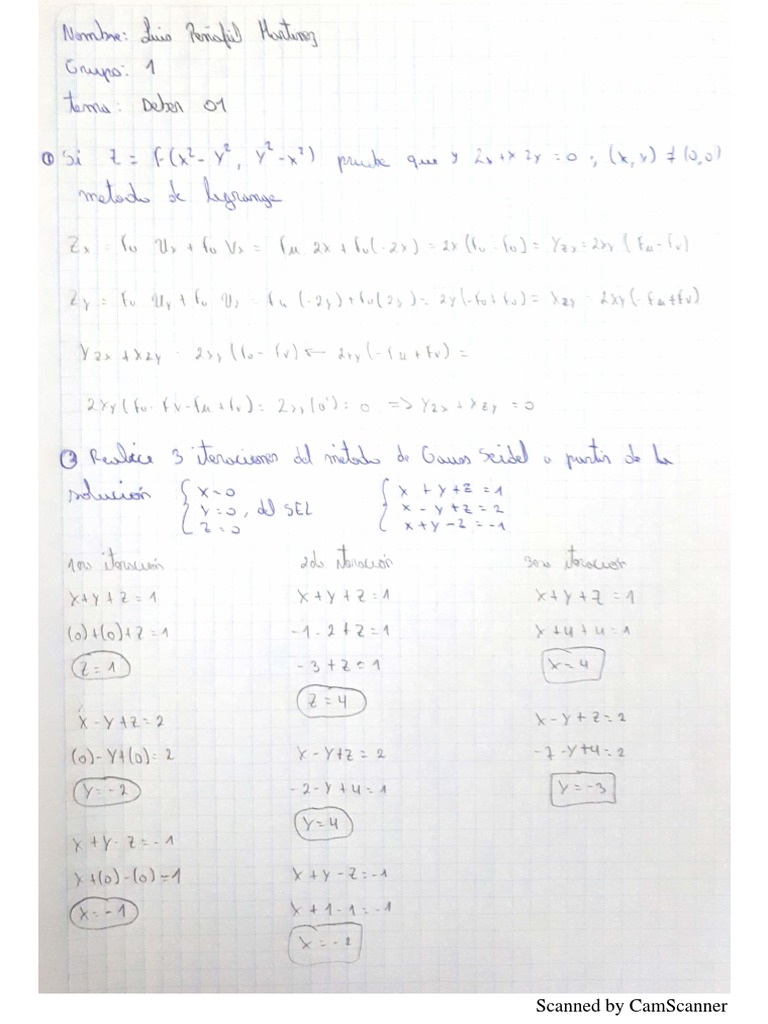 Nombre: Luis Peñafiel Martinez
Grupo: 1
tema: Deber 01
① Si Z = f(x² - y², y² - x²) pruebe que y Zx + x Zy = 0; (x, y) ≠ (0,0)
metodo de lagrange
Zx = fu Ux + fv Vx = fu 2x + fv(-2x) = 2x (fu - fv) = yZx = 2xy (fu - fv)
Zy = fu Uy + fv Vy = fu (-2y) + fv(2y) = 2y(-fu + fv) = xZy = 2xy(-fu + fv)
yZx + xZy = 2xy (fu - fv) + 2xy (-fu + fv) =
2xy (fu - fv - fu + fv) = 2xy (0) = 0 => yZx + xZy = 0
② Realice 3 iteraciones del metodo de Gauss Seidel a partir de la
solución { x=0 y=0 z=0 , del SEL { x + y + z = 1 x - y + z = 2 x + y - z = -1
1era iteración
x + y + z = 1
(0)+(0)+z = 1
z = 1
x - y + z = 2
(0) - y + (0) = 2
y = -2
x + y - z = -1
x + (0) - (0) = -1
x = -1
2da iteración
x + y + z = 1
-1 - 2 + z = 1
-3 + z = 1
z = 4
x - y + z = 2
-2 - y + 4 = 1
y = 4
x + y - z = -1
x + 1 - 1 = -1
x = -2
3era iteracion
x + y + z = 1
x + 4 + 4 = 1
x = 4
x - y + z = 2
-7 - y + 4 = 2
y = -3
Scanned by CamScanner